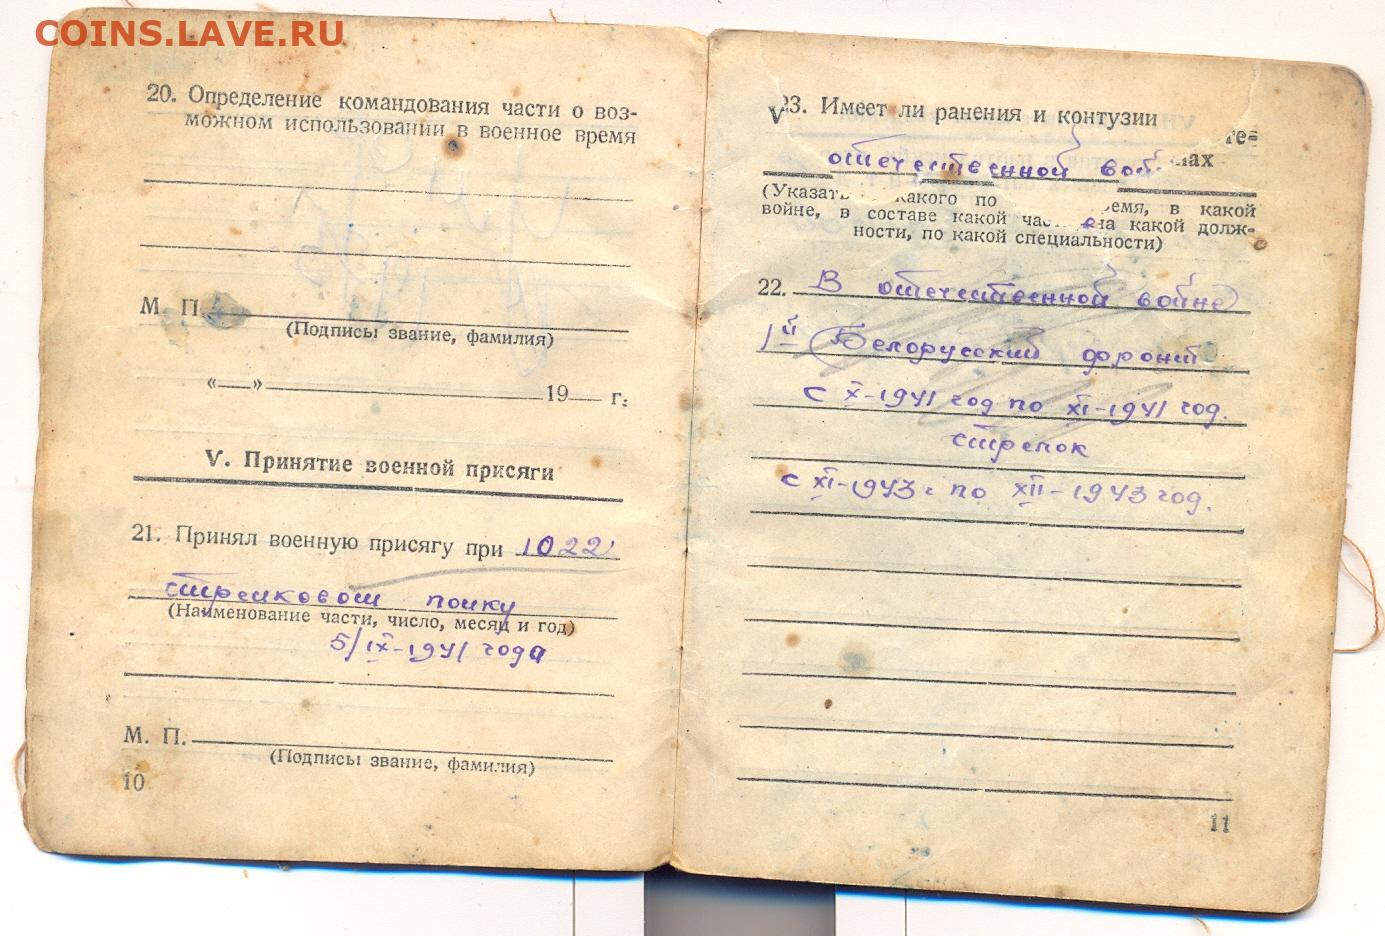 COINS.LAVE.RU
20. Определение командования части о воз-
можном использовании в военное время
М. П.
(Подписы звание, фамилия)
«—» 19— г.
V. Принятие военной присяги
21. Принял военную присягу при 1022
стрелковом полку
(Наименование части, число, месяц и год)
5/IX-1941 года
М. П.
(Подписы звание, фамилия)
10
V
23. Имеет ли ранения и контузии
те-
нах
отечественной вой
(Указать какого по емя, в какой
войне, в составе какой час на какой долж-
ности, по какой специальности)
22. В отечественной войне
1й Белорусский фронт
с X-1941 год по XI-1941 год.
стрелок
с XI-1943 г по XII-1943 год.